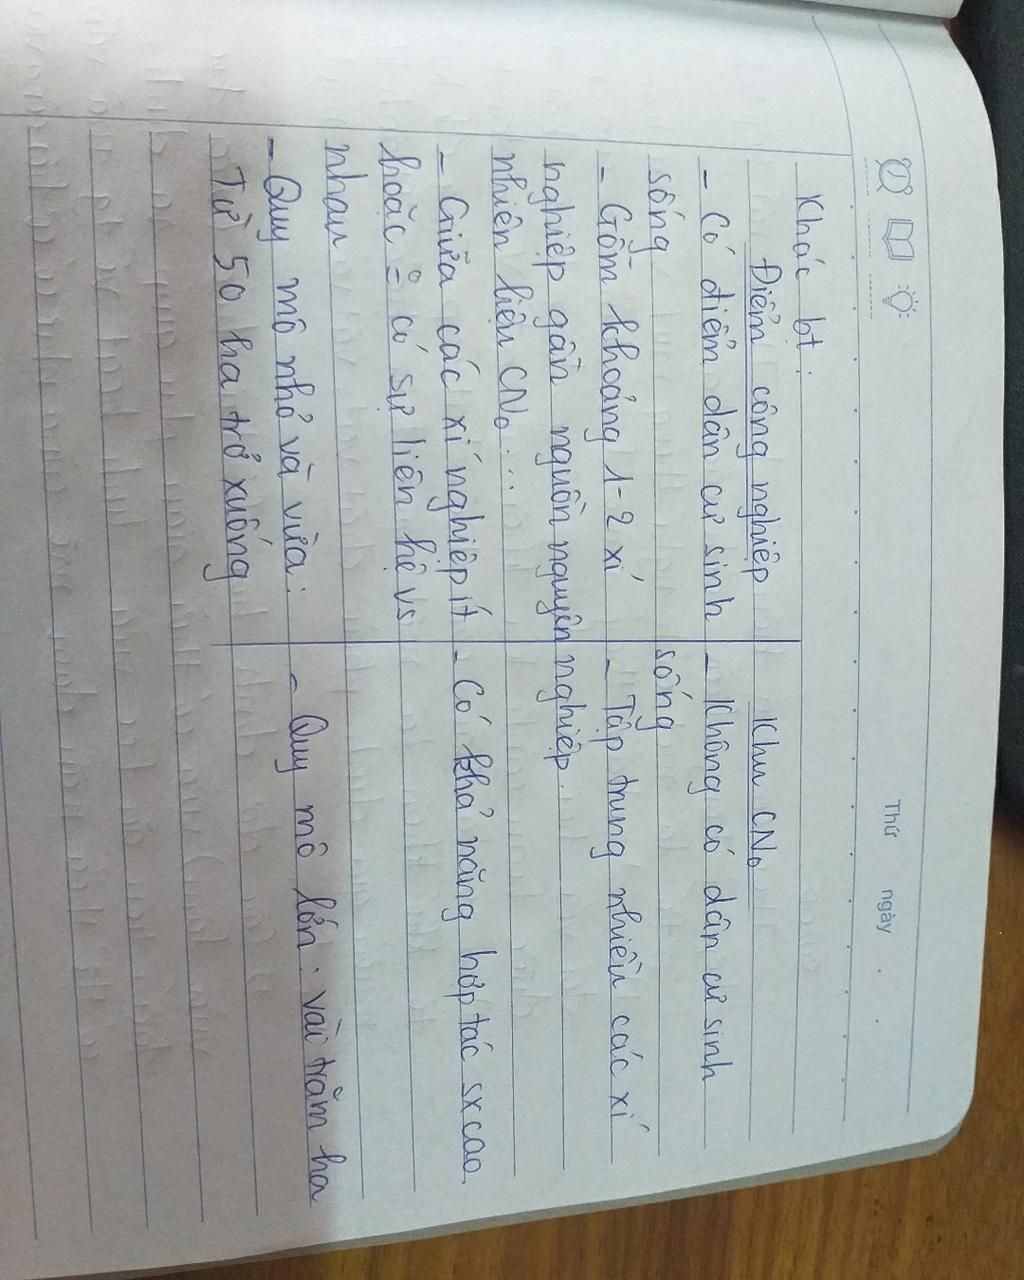 Thứ ngày . .
Khác bt:
Điểm công nghiệp
Khu CNo
- Có điểm dân cư sinh
sống
- Gồm khoảng 1-2 xí
nghiệp gần nguồn nguyên
nhiên liệu CNo...
- Giữa các xí nghiệp ít
hoặc o = có sự liên hệ vs
nhau
- Quy mô nhỏ và vừa:
Từ 50 ha trở xuống
- Không có dân cư sinh
sống
- Tập trung nhiều các xí
nghiệp.
- Có khả năng hợp tác sx cao
- Quy mô lớn: vài trăm ha